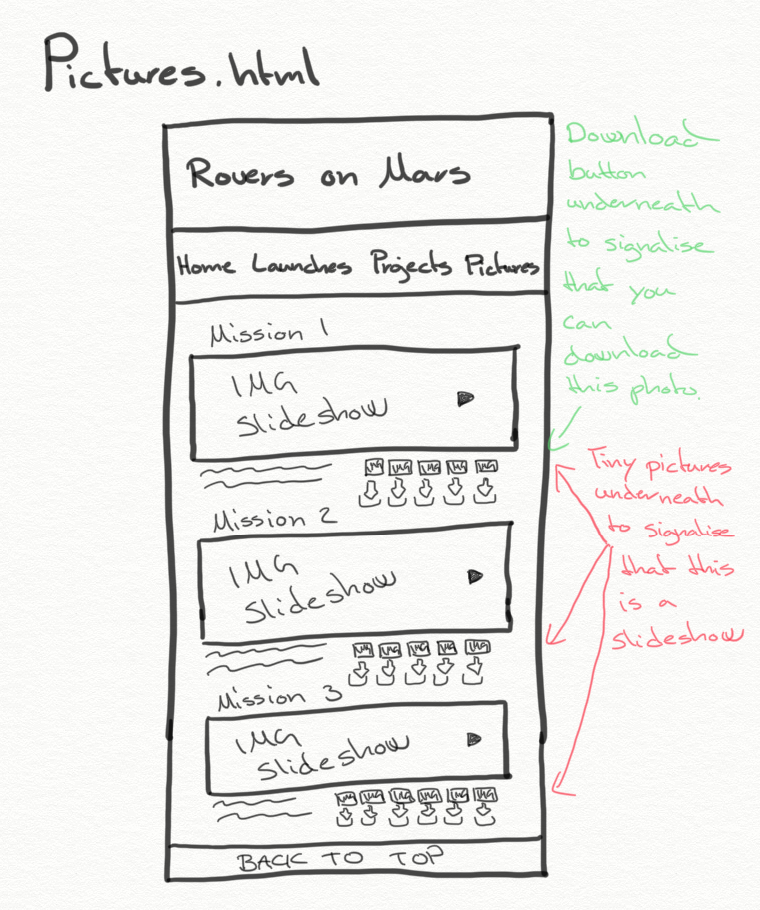 Pictures.html
Rovers on Mars
Home Launches Projects Pictures
Mission 1
IMG
slideshow
IMG IMG IMG IMG IMG
Mission 2
IMG
slideshow
IMG IMG IMG IMG IMG
Mission 3
IMG
slideshow
IMG IMG IMG IMG IMG IMG
BACK TO TOP
Download
button
underneath
to signalise
that you
can
download
this photo.
Tiny pictures
underneath
to signalise
that this
is a
slideshow